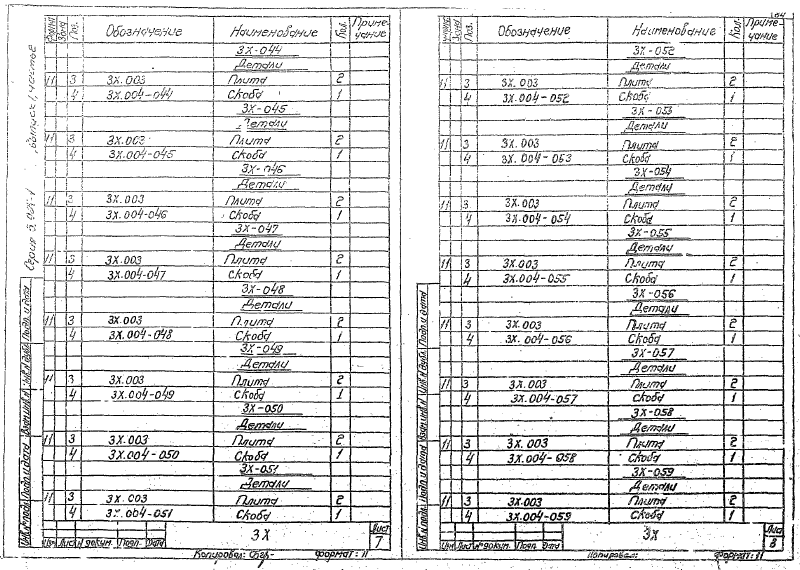 Формат Зона Поз. Обозначение Наименование Кол. Примечание
3Х-044
Детали
11 3 3Х.003 Плита 2
4 3Х.004-044 Скоба 1
3Х-045
Детали
11 3 3Х.003 Плита 2
4 3Х.004-045 Скоба 1
3Х-046
Детали
11 3 3Х.003 Плита 2
4 3Х.004-046 Скоба 1
3Х-047
Детали
11 3 3Х.003 Плита 2
4 3Х.004-047 Скоба 1
3Х-048
Детали
11 3 3Х.003 Плита 2
4 3Х.004-048 Скоба 1
3Х-049
Детали
11 3 3Х.003 Плита 2
4 3Х.004-049 Скоба 1
3Х-050
Детали
11 3 3Х.003 Плита 2
4 3Х.004-050 Скоба 1
3Х-051
Детали
11 3 3Х.003 Плита 2
4 3Х.004-051 Скоба 1
3Х
Лист
7
Изм Лист № докум. Подп. Дата
Копировал: Формат: 11
Серия выпуск 1, часть
Инв.№ подл. Подп. и дата Взам.инв.№ Инв.№ дубл. Подп. и дата
Обозначение Наименование Кол. Примечание
Зона Поз.
3Х-052
Детали
11 3 3Х.003 Плита 2
4 3Х.004-052 Скоба 1
3Х-053
Детали
11 3 3Х.003 Плита 2
4 3Х.004-053 Скоба 1
3Х-054
Детали
11 3 3Х.003 Плита 2
4 3Х.004-054 Скоба 1
3Х-055
Детали
11 3 3Х.003 Плита 2
4 3Х.004-055 Скоба 1
3Х-056
Детали
11 3 3Х.003 Плита 2
4 3Х.004-056 Скоба 1
3Х-057
Детали
11 3 3Х.003 Плита 2
4 3Х.004-057 Скоба 1
3Х-058
Детали
11 3 3Х.003 Плита 2
4 3Х.004-058 Скоба 1
3Х-059
Детали
11 3 3Х.003 Плита 2
4 3Х.004-059 Скоба 1
3Х
Лист
8
Изм Лист № докум. Подп. Дата
Копировал: Формат: 11
Инв.№ подл. Подп. и дата Взам.инв.№ Инв.№ дубл. Подп. и дата